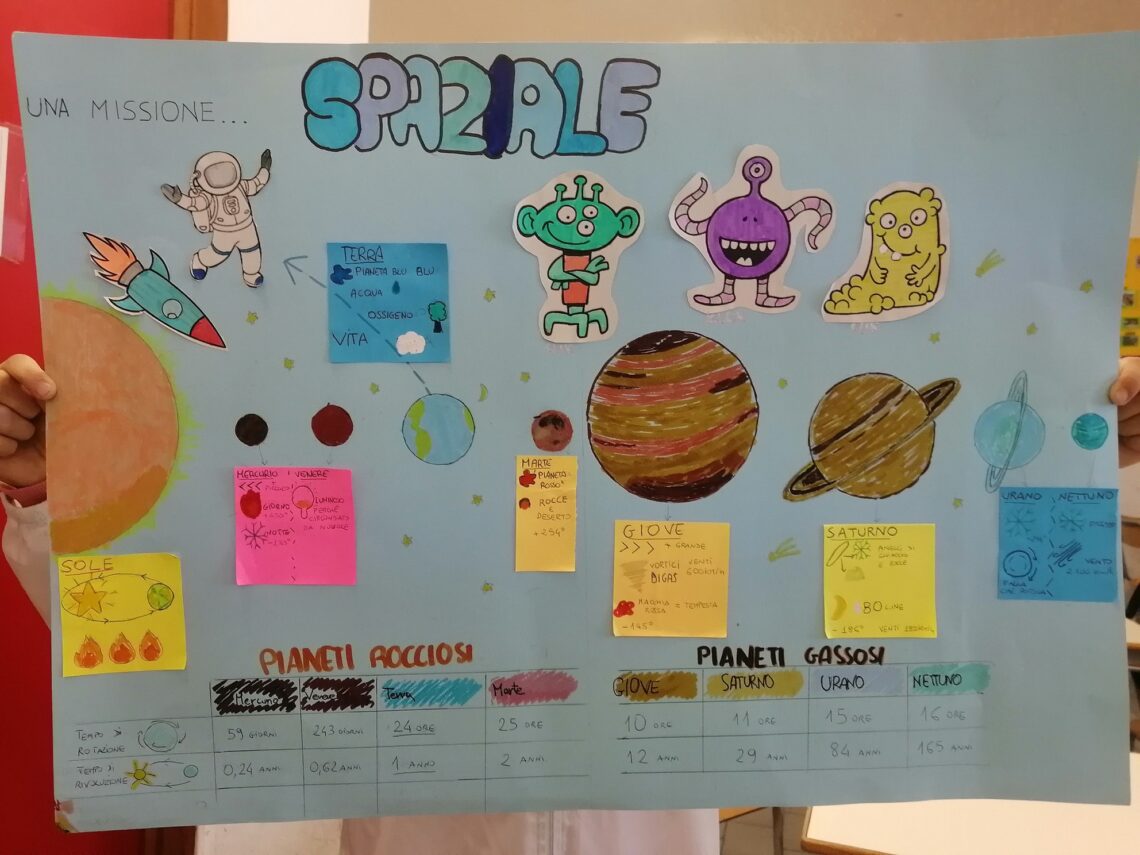 UNA MISSIONE...
SPAZIALE
TERRA
PIANETA BLU BLU
ACQUA
OSSIGENO
VITA
MERCURIO
<<<
GIORNO
NOTTE
VENERE
LUMINOSO
PERCHÉ
CIRCONDATO
DA NUVOLE
MARTE
PIANETA
ROSSO
ROCCE
E
DESERTO
GIOVE
>>> + GRANDE
VORTICI VENTI
DI GAS 600 km/h
MACCHIA = TEMPESTA
ROSSA
-145°
SATURNO
ANELLI DI
GHIACCIO
E ROCCE
80 LUNE
VENTI
URANO
NETTUNO
VENTO
SOLE
PIANETI ROCCIOSI
Mercurio Venere Terra Marte
TEMPO DI
ROTAZIONE
59 GIORNI 243 GIORNI 24 ORE 25 ORE
TEMPO DI
RIVOLUZIONE
0,24 ANNI 0,62 ANNI 1 ANNO 2 ANNI
PIANETI GASSOSI
GIOVE SATURNO URANO NETTUNO
10 ORE 11 ORE 15 ORE 16 ORE
12 ANNI 29 ANNI 84 ANNI 165 ANNI